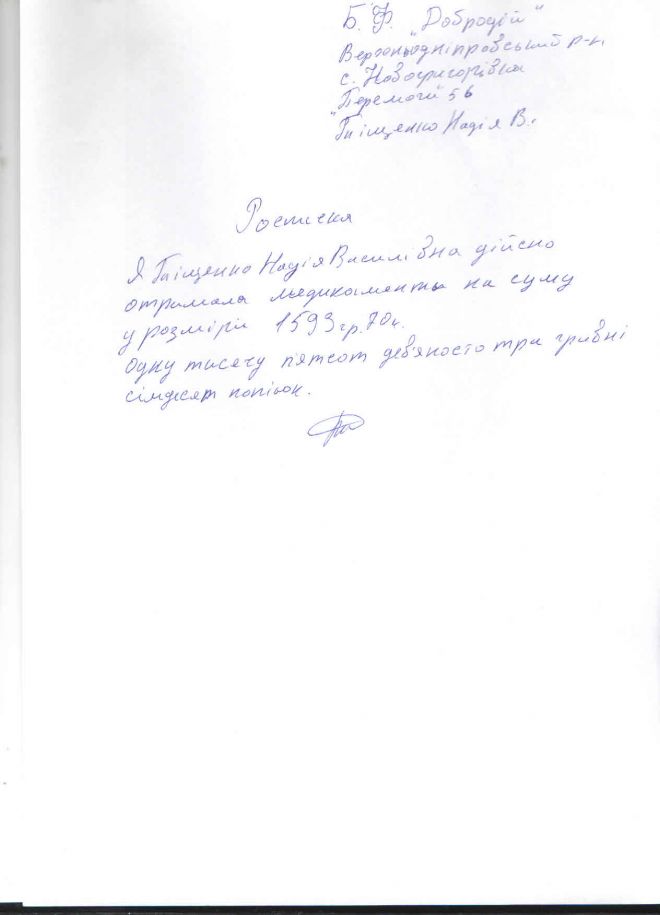 Б. Ф. "Добродій"
Верхньодніпровський р-н
с. Новогригорівка
"Перемоги" 56
Надія В.
Росписка
Я Надія Василівна дійсно
отримала медикаменты на суму
у розмірі 1593 гр. 70 к.
Одну тисячу п'ятсот дев'яносто три гривні
сімдесят копійок.